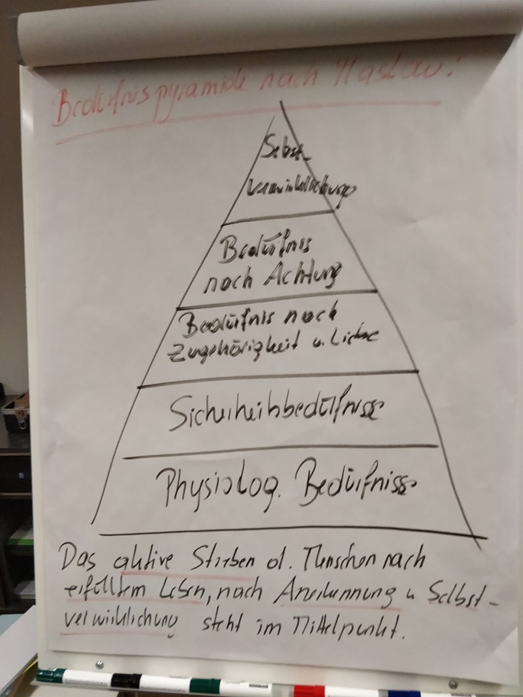 Bedürfnispyramide nach Maslow:
Selbst
verwirklichung
Bedürfnis
nach Achtung
Bedürfnis nach
Zugehörigkeit u. Liebe
Sicherheitsbedürfnisse
Physiolog. Bedürfnisse
Das aktive Streben d. Menschen nach
erfülltem Leben, nach Anerkennung u Selbst-
verwirklichung steht im Mittelpunkt.